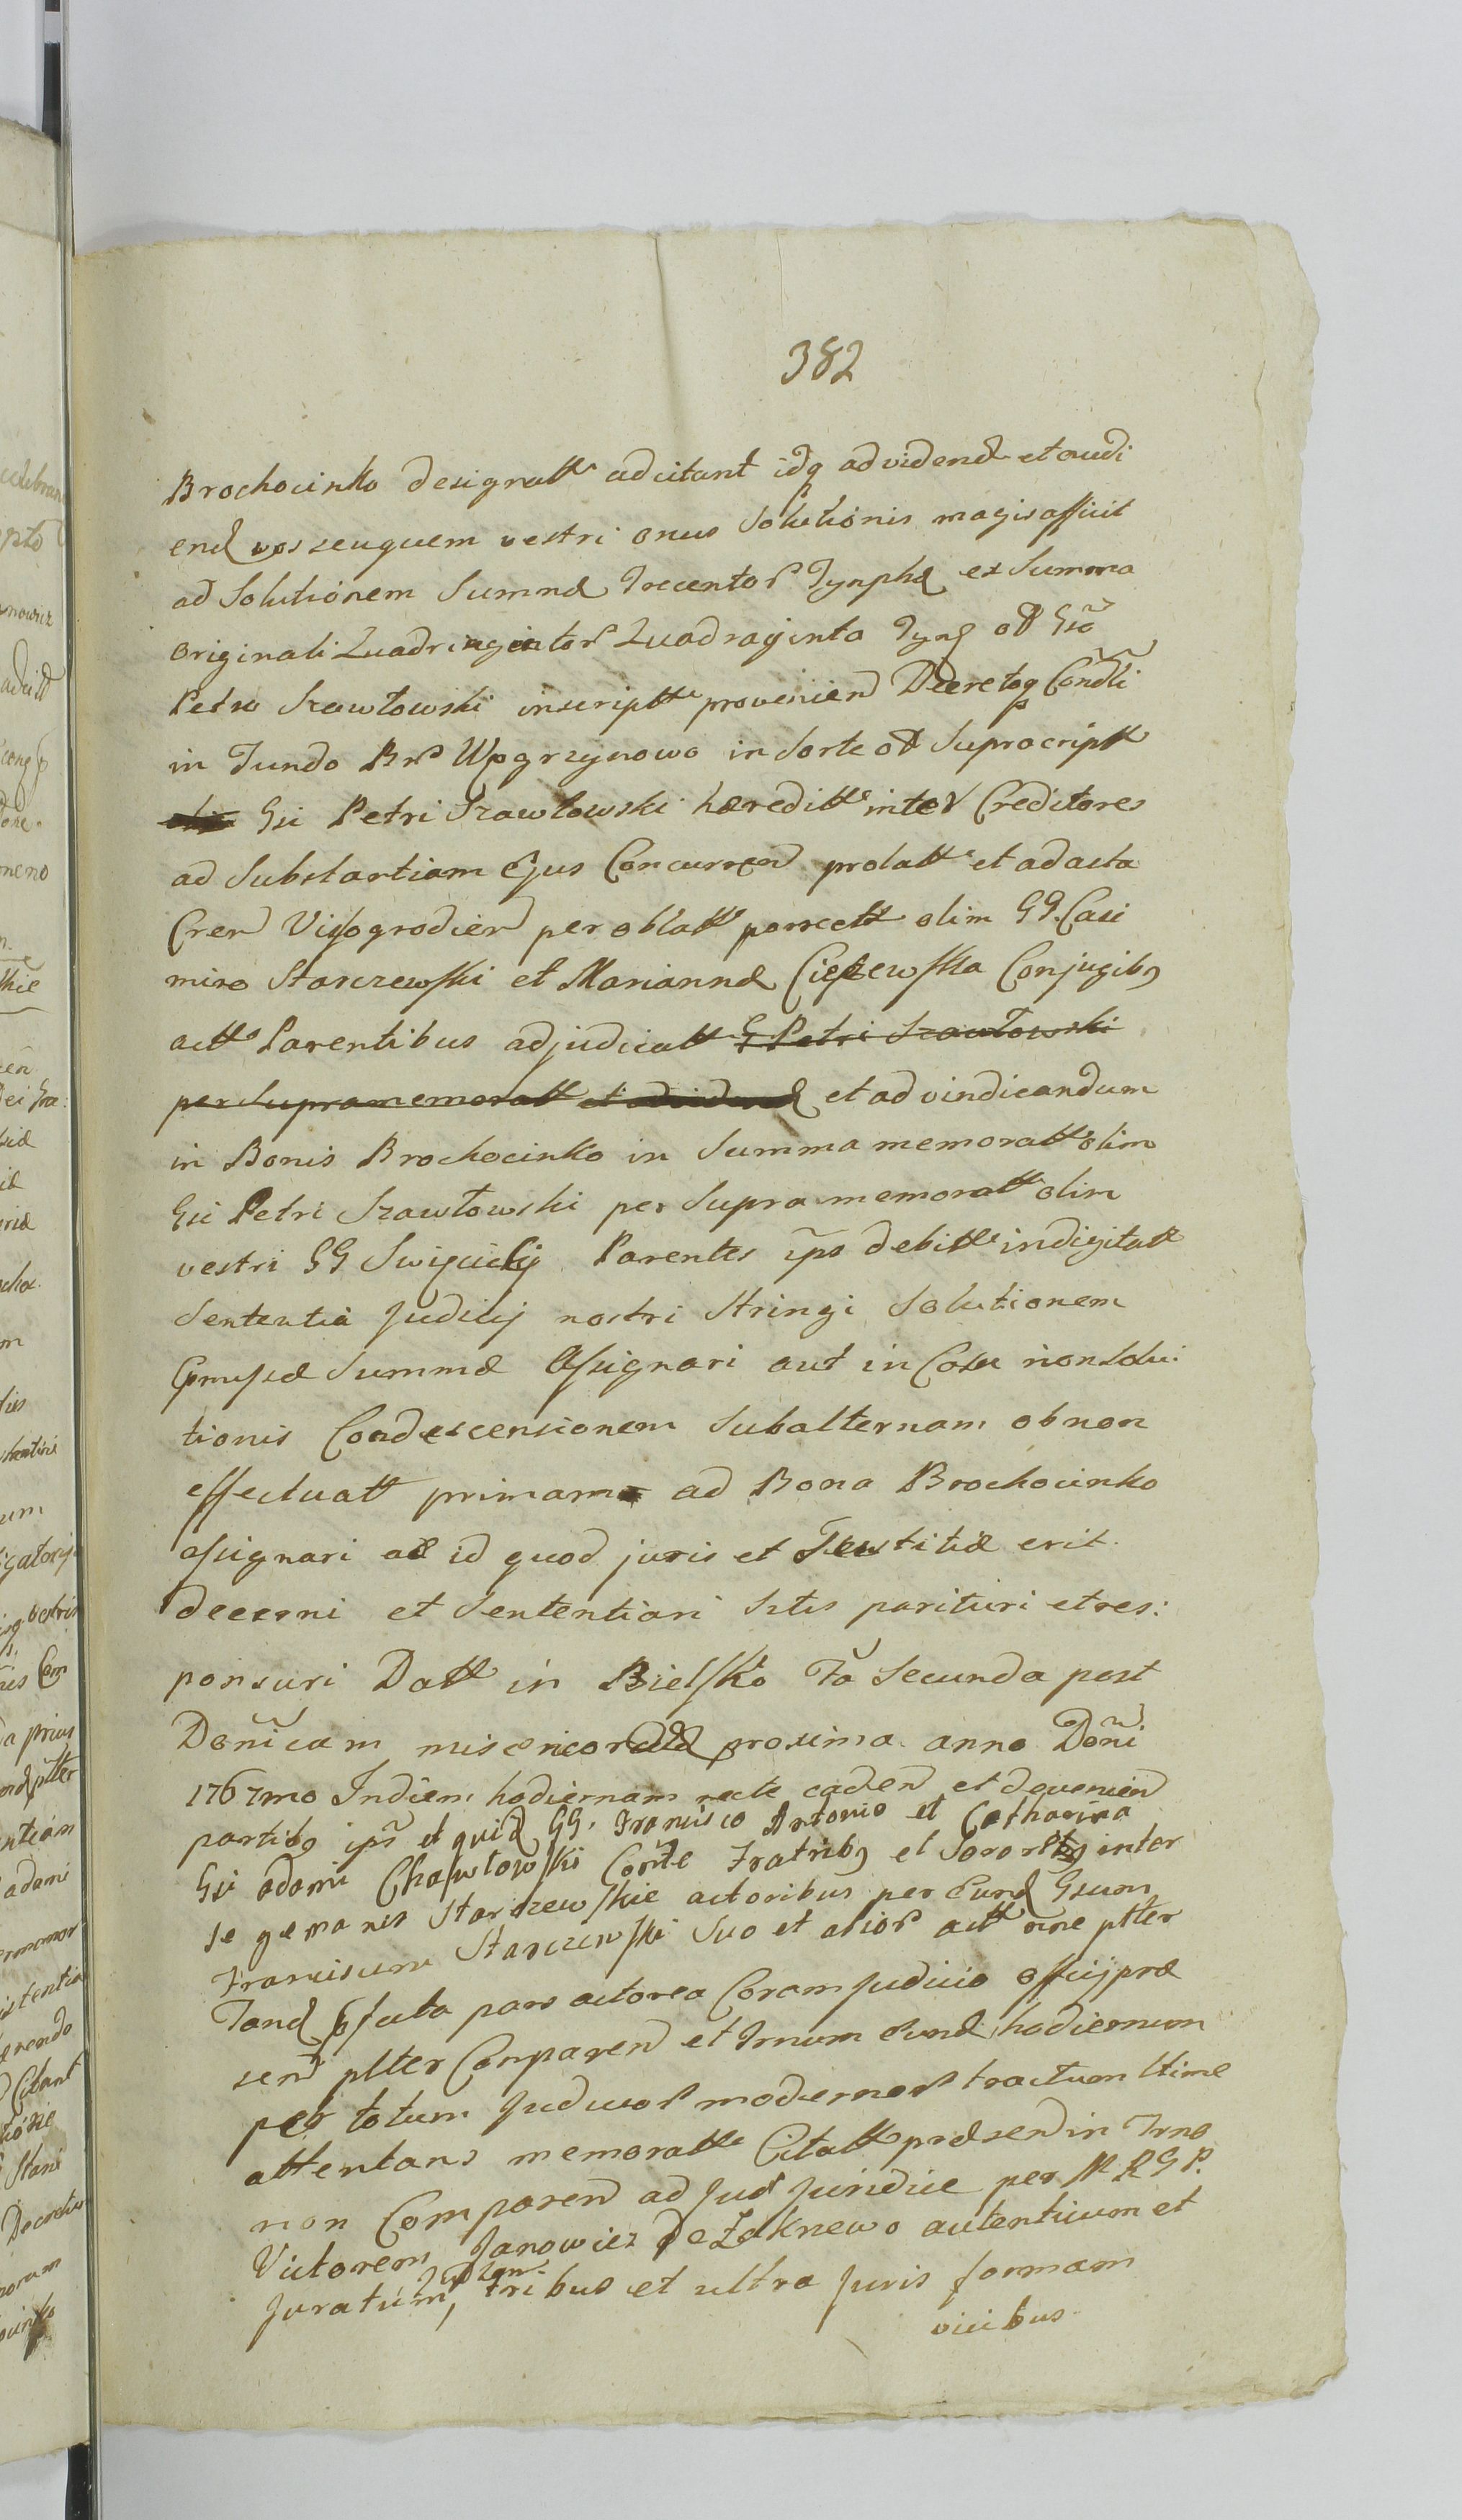 382
Brochocinko designatt adcitant idq ad vidend et audi
end vos seu quem vestri onus Solutionis magis afficit
ad Solutionem Summæ Trecentor Tynph ex Summa
originali Quadringentor Quadraginta Tynf Gso
Petro Szawłowski inscriptt provenien Decretoq Condli
in Fundo Bnr Wpgrzynowo in Sorte Suprascriptt
Gsi Petri Szawłowski hæreditt inter Creditores
ad Substantiam Ejus Concurren prolatt et ad acta
Cren Vissogrodien per oblatt porrectt olim GG. Casi
miro Starczewski et Mariannæ Cieszewska Conjugibq
actt Parentibus adjudicatt G Petri Szawłowski
per Supramemoratt et ad vidend et ad vindicandum
in Bonis Brochocinko in Summa memoratt olim
Gsi Petri Szawłowski per Supra memoratt olim
vestri GG Swięcicky Parentes ips debitt indigitatt
Sententia Judicij nostri Stringi Solutionem
Summæ Assignari aut in Casu non Solu:
tionis Condescensionem Subalternam ob non
effectuatt primam ad Bona Brochocinko
assignari ac id quod juris et Justitiæ erit
decerni et Sententiari Stis parituri et res:
ponsuri Datt in Bielsko Fa Secunda post
Doñicam misericordiæ proxima anno Doñi
1767mo In diem hodiernam recte caden et devenien
partibq ips et quid GG. Francisco Antonio et Catharina
Gsi adami Chassłowski Conte Fratribq et Sorore inter
se germanis Starczewskie actoribus per Eund Gsum
Franciscum Starczewski Suo et alior actt nne ptter
Tand pars actorea Coram Judicio officij præ
sen ptter Comparen et Trnum Eund hodiernum
per totum Judicior modernor tractum ltime
attentans memoratt Citatt præsen in Trno
non Comparen ad Jud Juridice per M R G P.
Victorem Janowicz de Zakrzewo autenticum et
Juratum, tribus et ultra Juris formam
vicibus